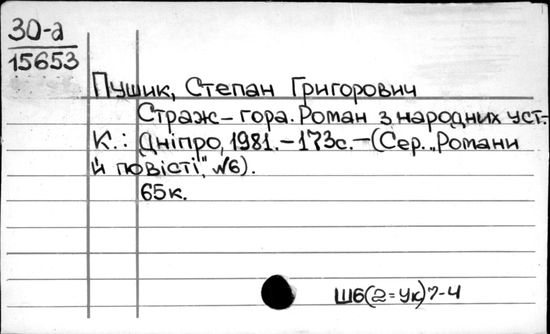 30-а
15653
Пушик, Степан Григорович
Страж-гора. Роман з народних уст.-
К.: Дніпро, 1981.-173с.-(Сер. „Романи
й повісті", №6).
65к.
Ш6(2=Ук)7-4